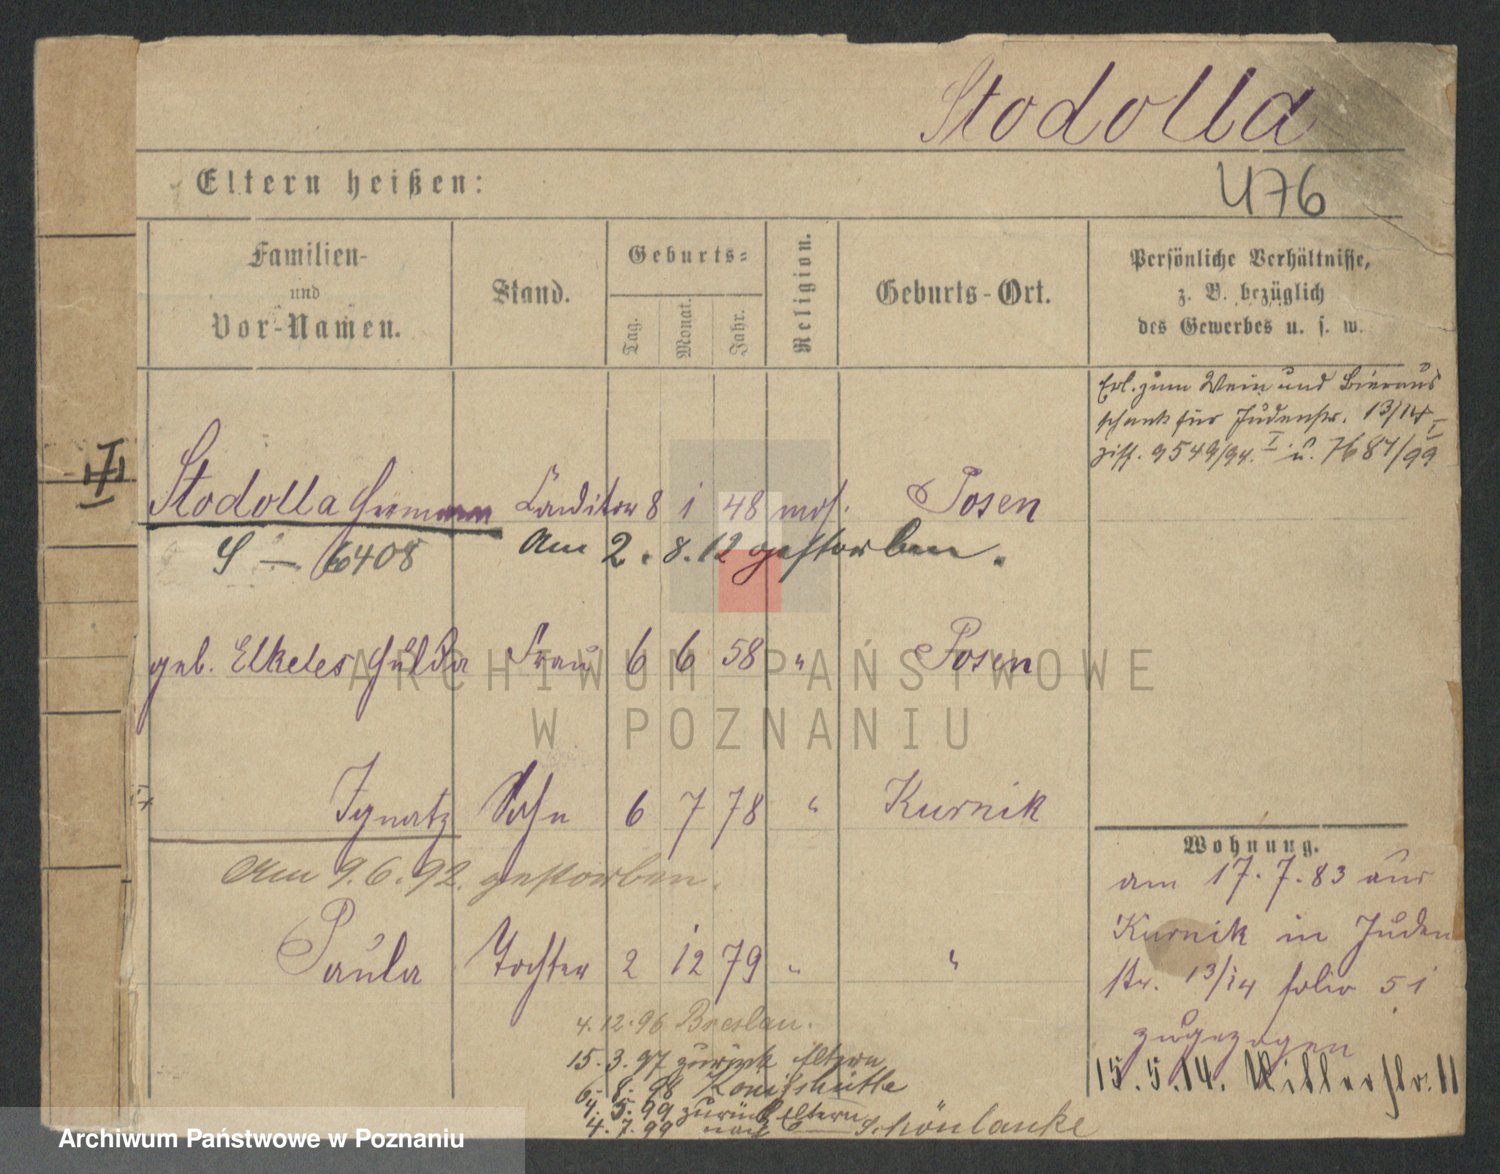 Stodolla
Eltern heißen:
476
Familien-
und
Vor-Namen.
Stand.
Geburts-
Tag.
Monat.
Jahr.
Religion.
Geburts-Ort.
Persönliche Verhältnisse,
z. B. bezüglich
des Gewerbes u. s. w.
Erl. zum Wein und Bieraus
schank für Judenstr. 13/14
9549/94. I u. 7687/99
Stodolla Hermann Conditor 8 1 48 mos. Posen
S — 6408 Am 2. 8. 12 gestorben.
geb. Elkeles Hulda Frau 6 6 58 " Posen
ARCHIWUM PAŃSTWOWE
W POZNANIU
Ignatz Sohn 6 7 78 " Kurnik
Am 9. 6. 92. gestorben.
Paula Tochter 2 12 79 " "
4. 12. 96 Breslau.
15. 3. 97 zurück Eltern
6. 8. 98 Königshütte
4. 5. 99 zurück Eltern
4. 7. 99 nach Schönlanke
Wohnung.
am 17. 7. 83 aus
Kurnik in Juden
str. 13/14 folio 51
zugezogen
15. 5. 14. Ritterstr. 11
Archiwum Państwowe w Poznaniu